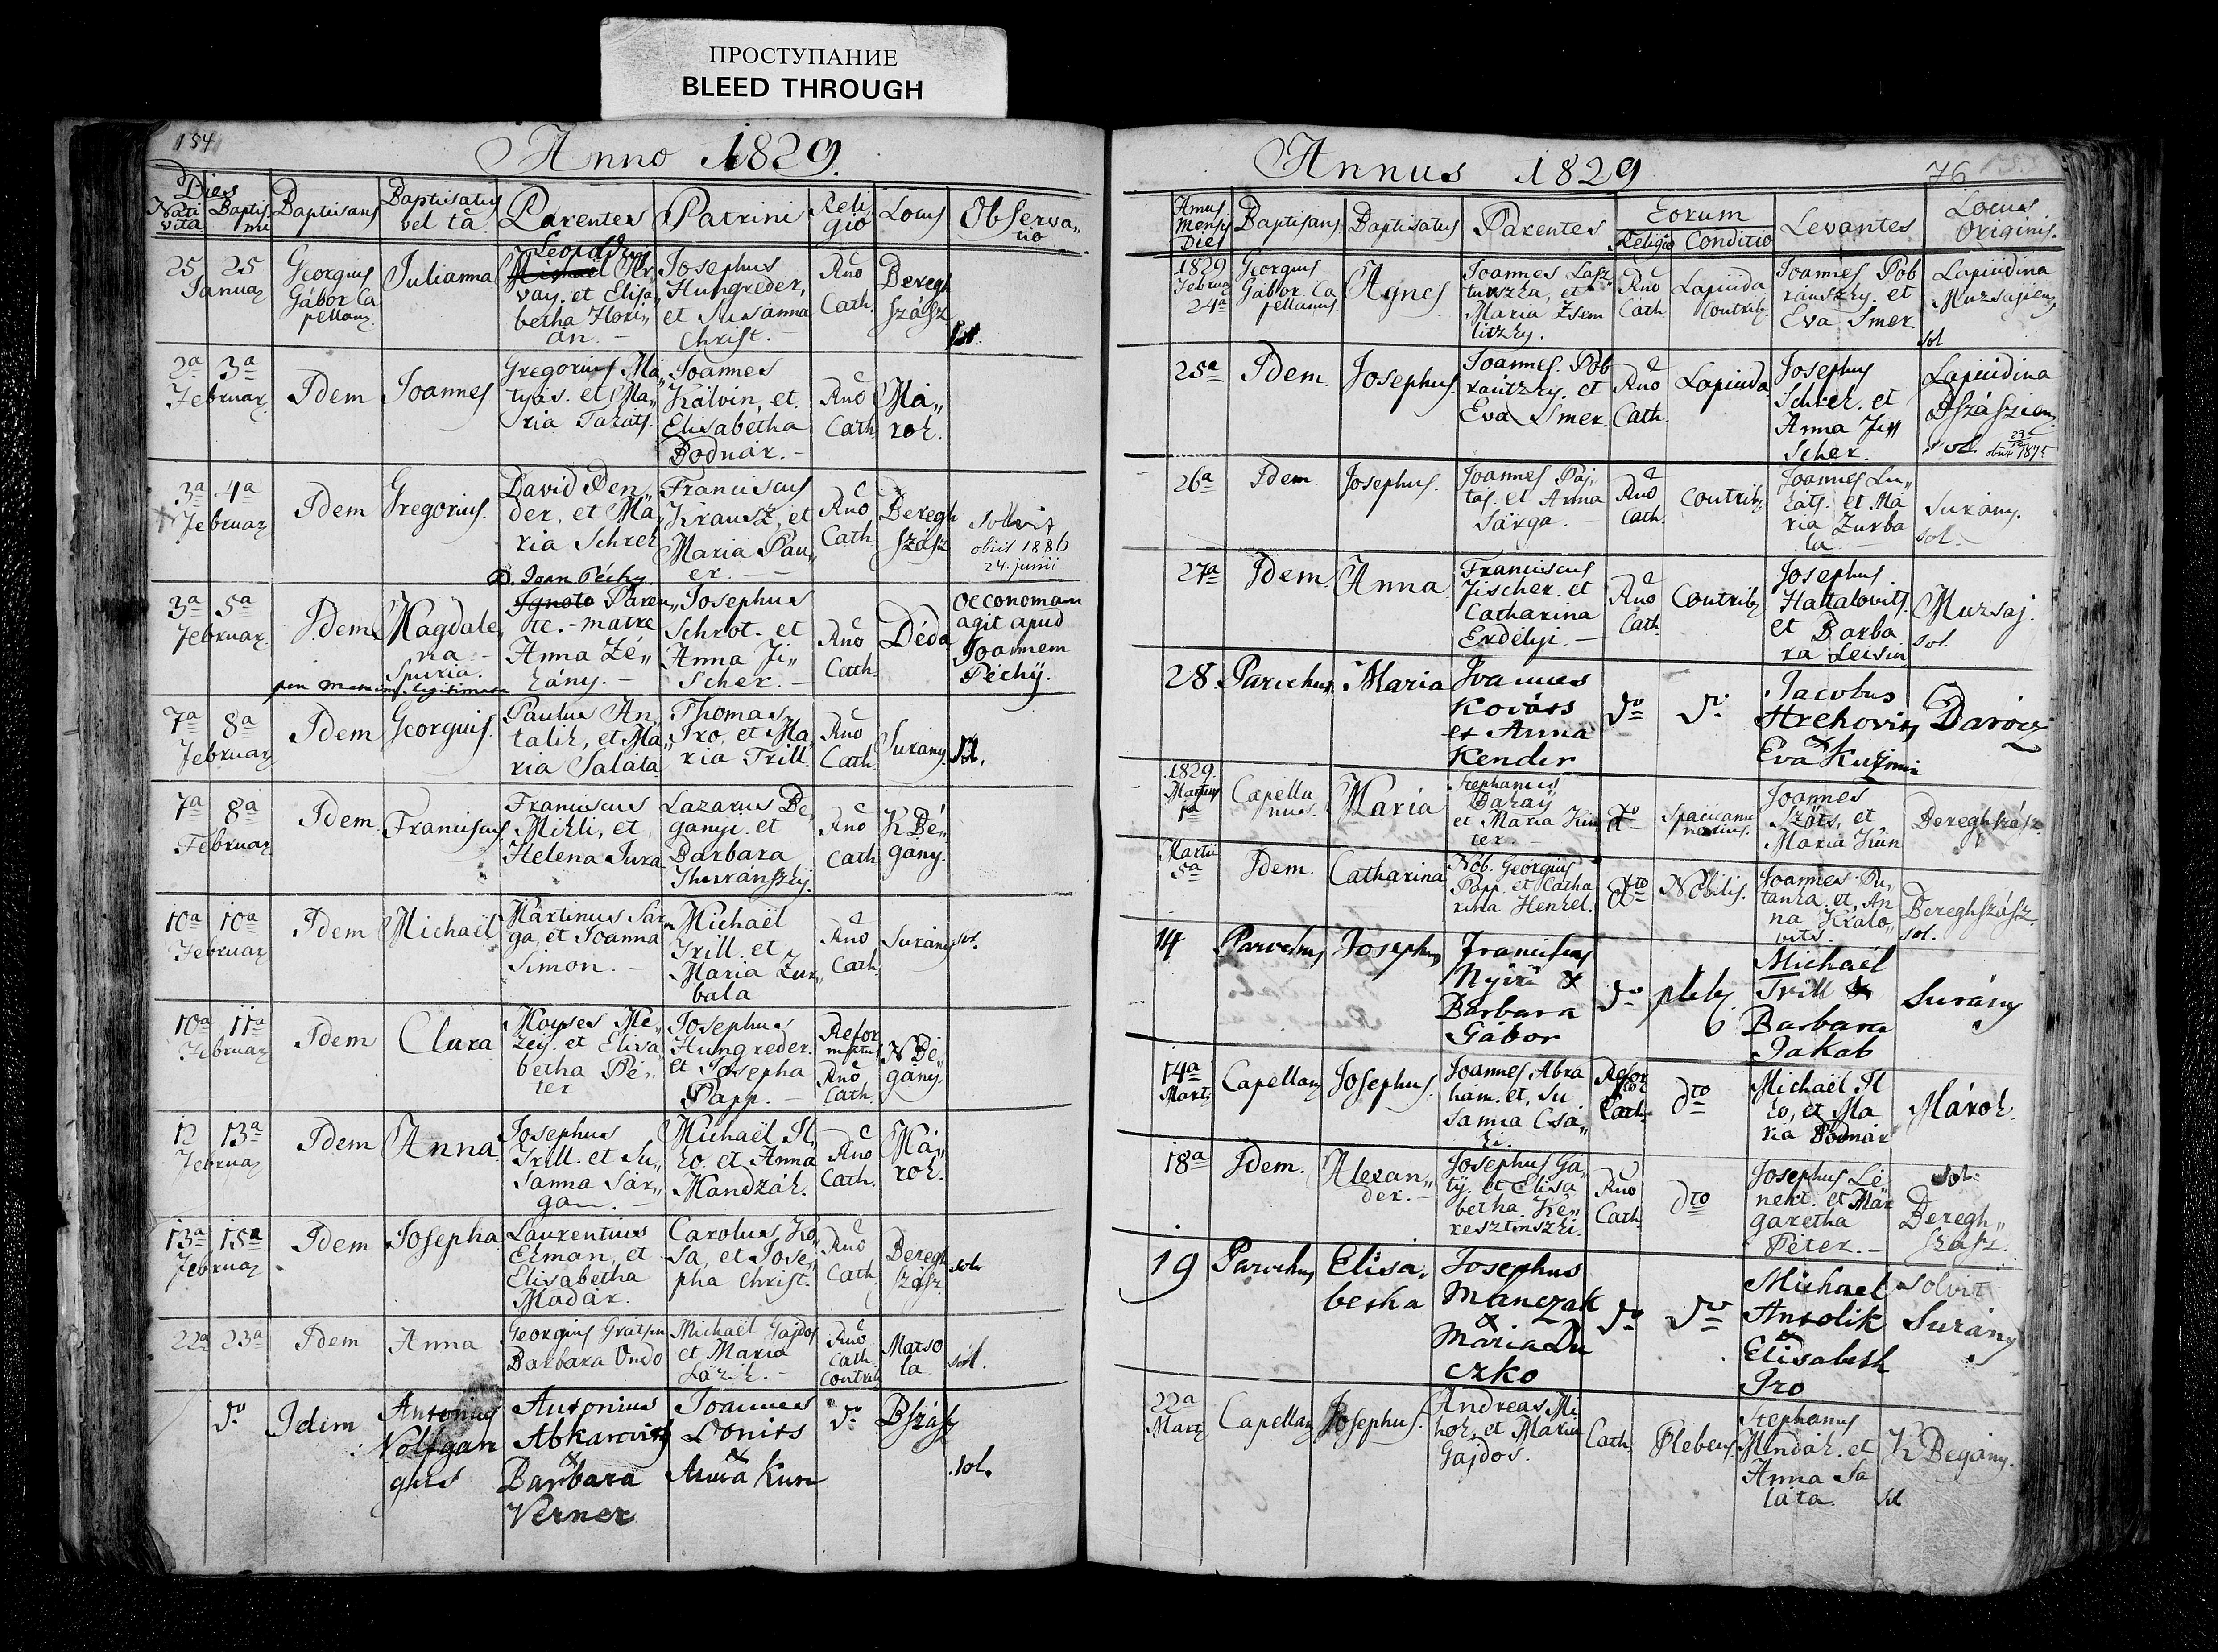 ПРОСТУПАНИЕ
BLEED THROUGH
154
Anno 1829.
Dies
Nativita Baptismi Baptisans Baptisatus vel ta Parentes Patrini Religio Locus Observatio
25 25 Januar Georgius Gábor Capellanus Julianna Leopoldus et Elisabetha Florián. Josephus Hungreder, et Susanna Christ. Rno Cath. Beregh szász sol.
2a 3a Februar Idem Joannes Gregorius Mátyás. et Maria Takáts. Joannes Kálvin, et Elisabetha Bodnár. Rno Cath Márok.
3a 4a Februar Idem Gregorius. David Bender, et Maria Schrek Franciscus Krausz, et Maria Pauer. Rno Cath Beregh szász solvit obiit 1886 24. junii
3a 5a Februar Idem Magdalena Spuria. D. Joan Péchy Ignoto Parente. matre Anna Zékány. Josephus Schrot. et Anna Fischer. Rno Cath. Déda Oeconomam agit apud Joannem Péchÿ.
per matrim. legitimata
7a 8a Februar Idem Georgius. Paulus Antalik, et Maria Saláta Thomas Iro, et Maria Trill. Rno Cath Surány sol.
7a 8a Februar Idem Franciscus Franciscus Mikli, et Helena Jura Lazarus Begányi. et Barbara Rno Cath K Bégány.
10a 10a Februar Idem Michaël Martinus Sárga, et Joanna Simon. Michaël Trill. et Maria Zurbala Rno Cath Surány sol.
10a 11a Februar Idem Clara Moyses Mezeÿ. et Elisabetha Péter Josephus Hungreder. et Josepha Papp. Reformatus Rno Cath. N Bégány
12 13a Februar Idem Anna Josephus Trill. et Susanna Sárga. Michaël Ilko. et Anna Mandzák. Rno Cath. Márok.
13a 15a Februar Idem Josepha Laurentius Ekman, et Elisabetha Madár. Carolus Kosa, et Josepha Christ. Rno Cath Beregh szász. sol.
22a 23a Idem Anna Georgius Barbara Ondo Michaël Gajdos et Maria Lázik. Rno Cath. Contrib Matsola sol.
do Idem Antonius Wolfgangus Antonius Abkarovits & Barbara Verner Joannes Lonits & Anna Kun do Bszász sol.
Annus 1829
76
Annus Mensis Dies Baptisans Baptisatus Parentes Eorum Religio Conditio Levantes Locus Originis.
1829 Februar 24a Georgius Gábor Capellanus Agnes Joannes Laszturszka, et Maria Zsemlitzky. Rno Cath Lapicida Contrib. Joannes Pobránszky. et Eva Smer. Lapicidina Muzsajien sol
25a Idem. Josephus. Joannes. Pobrántzky. et Eva Smer. Rno Cath. Lapicida Josephus Schrek. et Anna Fischer. Lapicidina Bszászien. sol. obiit 1875
26a Idem Josephus. Joannes Pajtás, et Anna Sárga. Rno Cath. Contrib. Joannes Lukáts. et Maria Zurbala Surány. sol.
27a Idem. Anna Franciscus Fischer. et Catharina Erdélyi. Rno Cath. Contrib Josephus Hattalovits. et Barbara Leisin Muzsaj. sol.
28. Parochus Maria Joannes Kováss et Anna Kender do do Jacobus Hrehovits & Eva Kuzmin Darócz
1829. Martius 1a Capellanus. Maria Stephanus Daraÿ et Maria Kinter. dto Joannes Szöts, et Maria Kún Bereghszász
Martii 5a Idem. Catharina Nob. Georgius Papp. et Catharina Henkel. dto Nobilis. Joannes Putanka. et Anna Kralovits. Bereghszász. sol.
14 Parochus Josephus Franciscus Nyiri & Barbara Gábor do plebs Michaël Trill & Barbara Jakab Surány
14a Mart. Capellan Josephus. Joannes Abrahám. et Susanna Csáki. Refor Cath. dto Michaël Ilko, et Maria Bodnár Márok.
18a Idem. Alexander. Josephus Gatÿ. et Elisabetha Keresztinszki. Rno Cath dto Josephus Lénert. et Margaretha Péter. sol. Bereghszász.
19 Parochus Elisabetha Josephus Manczak & Maria Duczko do do Michael Antolik & Elisabeth Iro Solvit Surány
22a Mart. Capellan Josephus. Andreas Mihok, et Maria Gajdos. Cath. Plebeus. Stephanus Mindák. et Anna Saláta. K Begány. sol